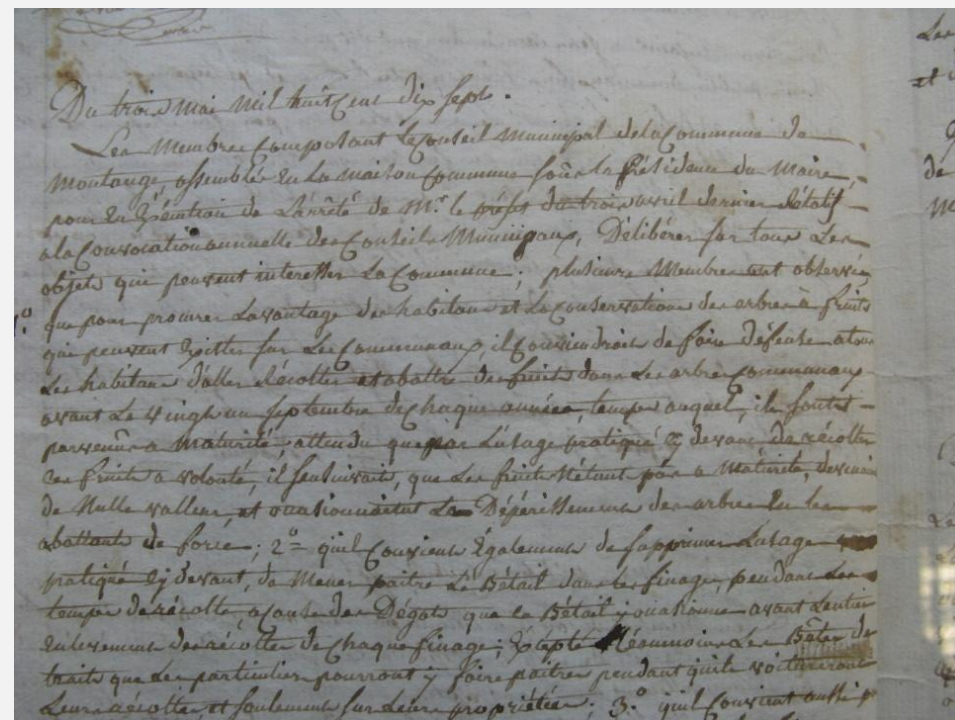 Du trois mai mil huit cent dix sept.
Les Membres Composant le Conseil Municipal de la Commune de
Montange, assemblés en la maison Commune sous la Présidence du Maire,
pour en Exécution de L'arrêté de Mr. le préfet du trois avril dernier Rélatif
a la Convocation annuelle des Conseils Municipaux, Délibérer sur tous Les
objets qui peuvent interesser La Commune ; plusieurs Membres ont observés
1.o
que pour procurer L'avantage des habitans et La Conservation des arbres à fruits
qui peuvent Exister sur Les Communaux, il Conviendroit de faire défense a tous
Les habitans d'aller Récolter et abattre des fruits dans Les arbres Communaux
avant Le vingt un septembre de Chaque année, temps auquel, ils sont
parvenûs a Maturité, attendu que par L'usage pratiqué Cy devant de récolter
Ces fruits a volonté, il s'en suivait, que Les fruits N'étant pas a Maturité,
de Nulle valleur, et ouasionnaient Le Dépérissement des arbres En les
abattants de force ; 2o qu'il Convient Également de supprimer L'usage
pratiqué Cy devant, de Mener paitre Le Bétail dans les finages, pendant Les
temps de récolte, a cause des Dégats que le Bétail y ouasionne avant L'entier
Enlevement des récoltes de Chaque finage ; Excepté Néanmoins Les Bêtes de
traits que Les particuliers pourront y faire paitre pendant qu'ils voitureront
Leurs récoltes, et seulement sur Leurs propriétés ; 3.o qu'il Convient aussi